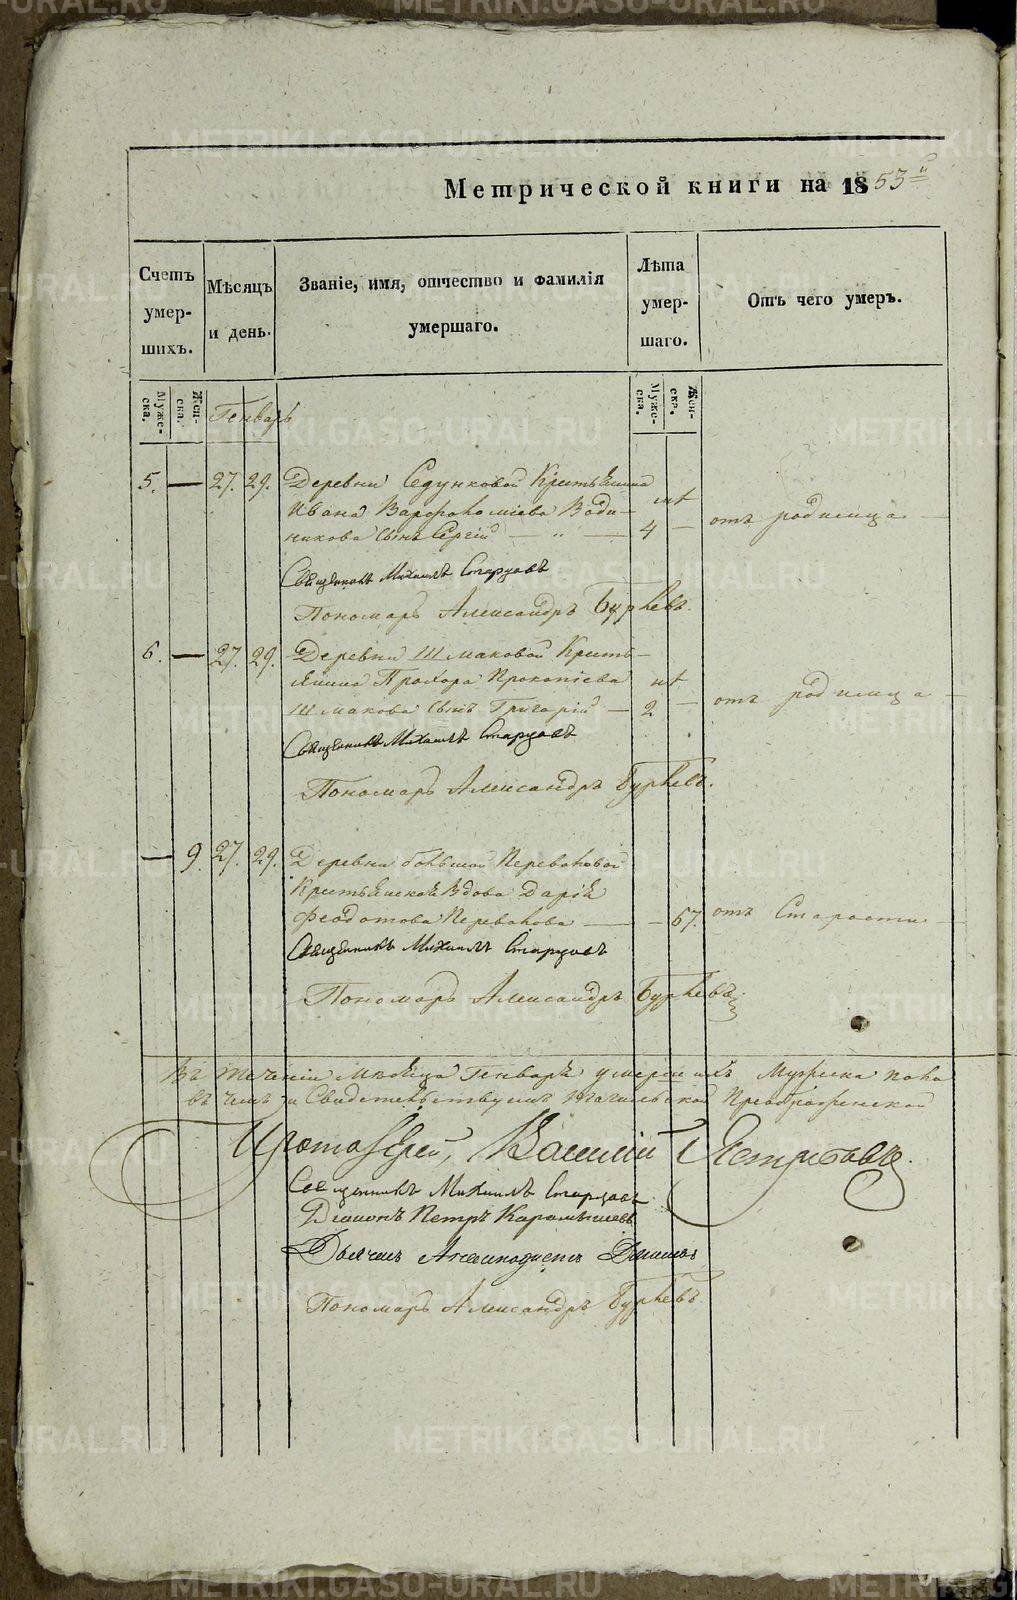 Метрической книги на 1853й
Счетъ умер- шихъ.
Мѣсяцъ и день.
Званіе, имя, отчество и фамилія умершаго.
Лѣта умер- шаго.
Отъ чего умеръ.
Муже- ска.
Жен- ска.
Муже- ска.
Жен- ска.
Генварь
5. — 27. 29. Деревни Седунковой Крестьянина
Ивана Варфоломіева Води-
никова сынъ Сергій — „ — 4 — отъ родимца —
Священникъ Михаилъ Старцовъ
Пономарь Александръ
6. — 27. 29. Деревни Шмаковой Кресть-
янина Прохора Прокопіева
Шмакова сынъ Григорій — 2 — отъ родимца —
Священникъ Михаилъ Старцовъ
Пономарь Александръ
— 9. 27. 29. Деревни большой Переваловой
Крестьянская Вдова Дарія
Феодотова Перевалова — — 67. отъ Старости —
Священникъ Михаилъ Старцовъ
Пономарь Александръ
Въ теченіи Мѣсяца Генваря умерло Мужеска пола
въ чемъ и Свидетельствуемъ Преображенской
Протоіерей, Василій
Священникъ Михаилъ Старцовъ
Діаконъ Петръ Карамышевъ
Дьячекъ
Пономарь Александръ
METRIKI.GASO-URAL.RU